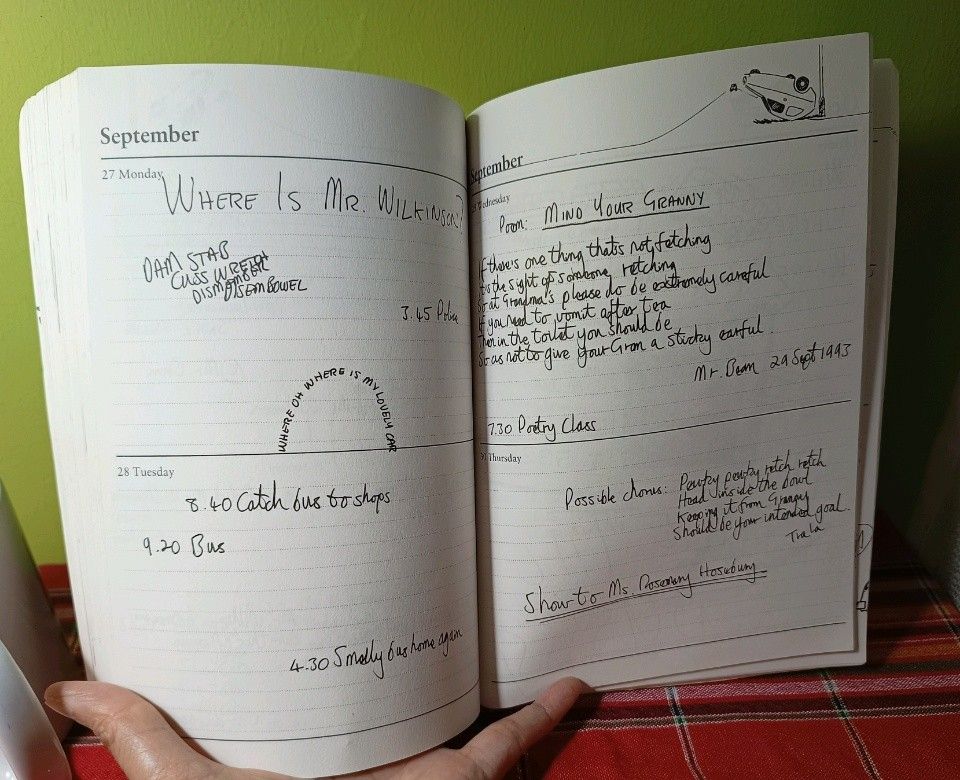 September
27 Monday
WHERE IS MR. WILKINSON?
DAM STAB
CUSS WRETCH
DISMEMBER
DISEMBOWEL
3.45 Police
WHERE OH WHERE IS MY LOVELY CAR
28 Tuesday
8.40 Catch bus to shops
9.20 Bus
4.30 Smelly bus home again
September
Wednesday
Poem: MIND YOUR GRANNY
If there's one thing that's not fetching
It's the sight of someone retching
So at Grandma's please do be extremely careful
If you need to vomit after tea
Then in the toilet you should be
So as not to give your Gran a sticky earful.
Mr. Bean 29 Sept 1993
7.30 Poetry Class
30 Thursday
Possible chorus: Pewky pewky retch retch
Head inside the bowl
Keeping it from Granny
Should be your intended goal.
Trala
Show to Ms. Rosemary